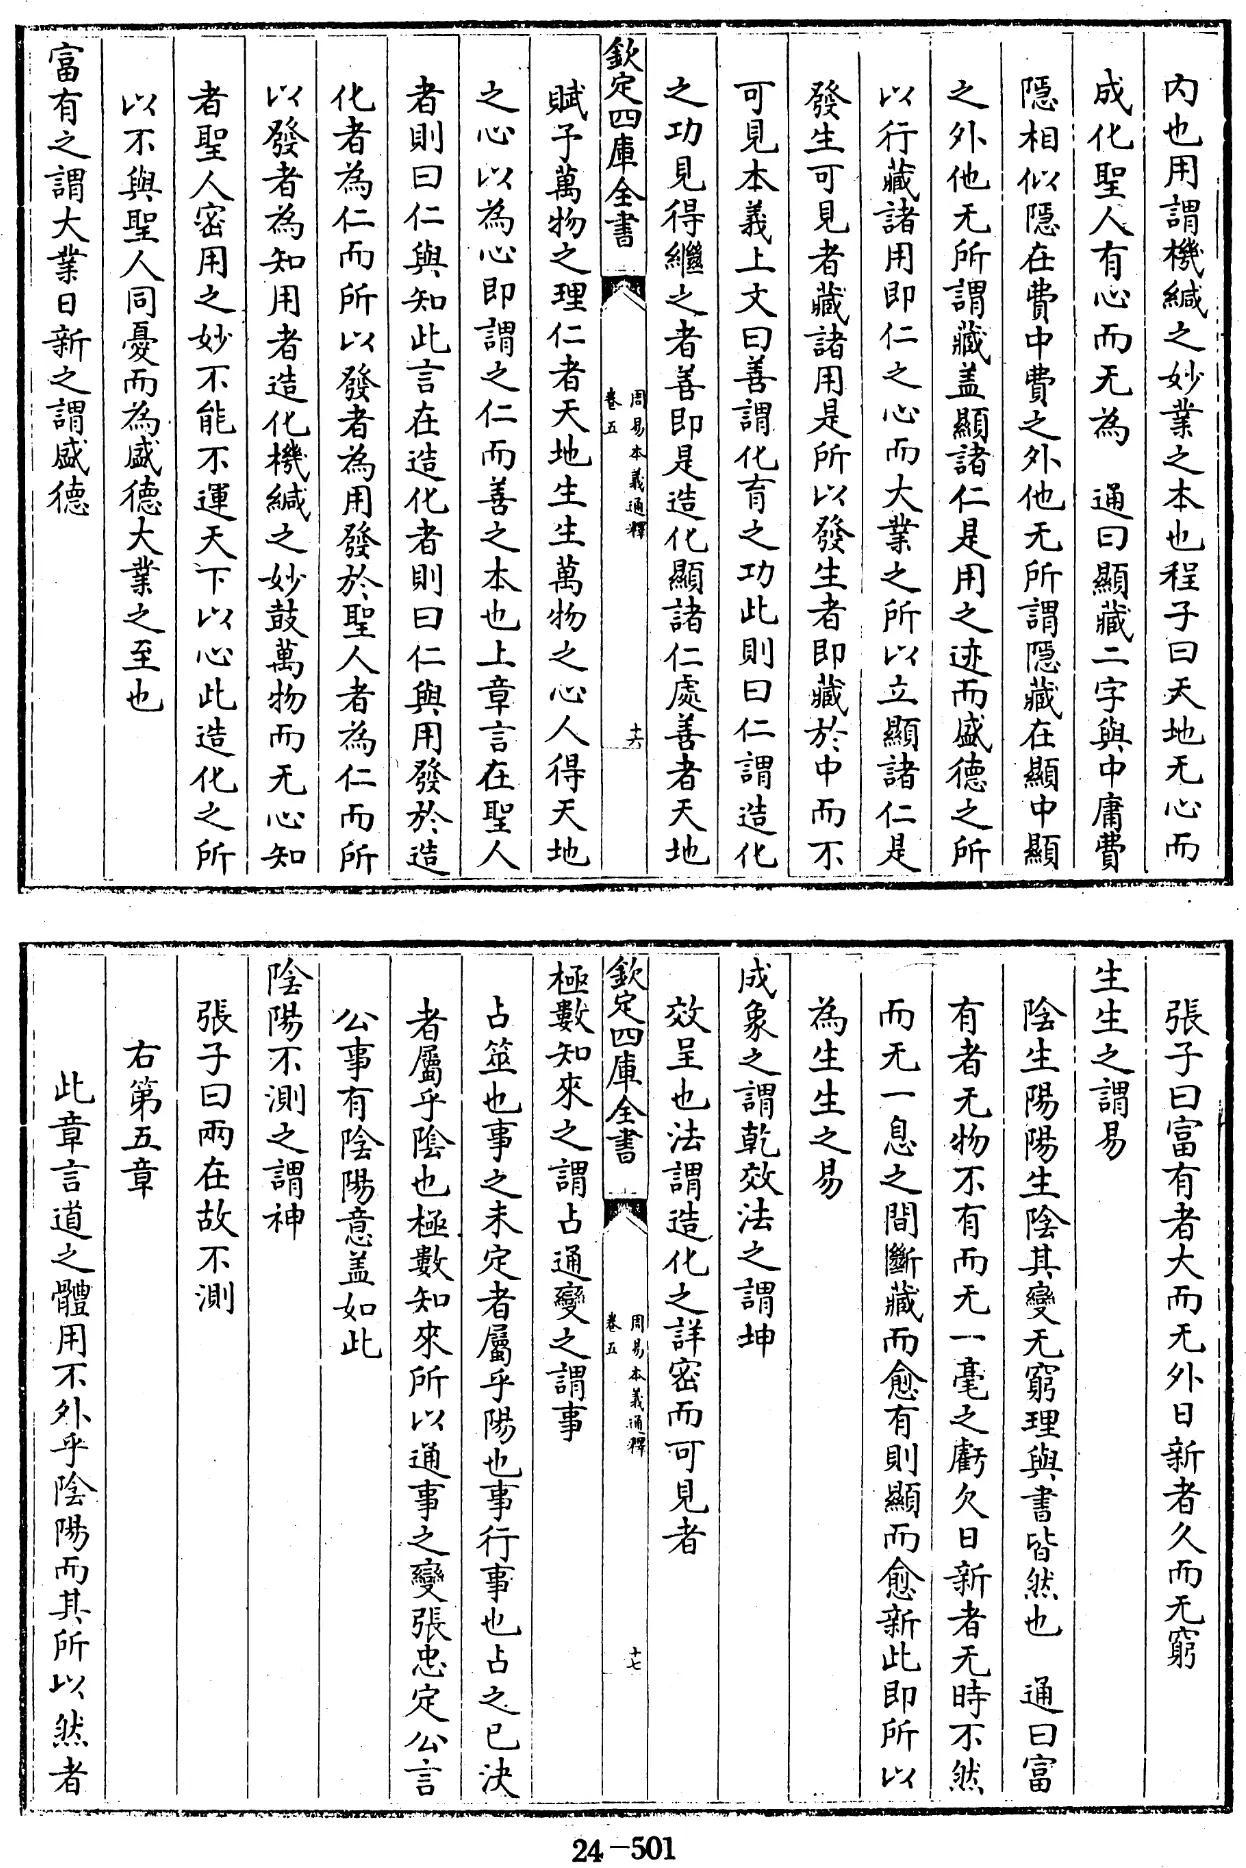 内也用謂機緘之妙業之本也程子曰天地无心而
成化聖人有心而无為　通曰顯藏二字與中庸費
隱相似隱在費中費之外他无所謂隱藏在顯中顯
之外他无所謂藏盖顯諸仁是用之迹而盛德之所
以行藏諸用即仁之心而大業之所以立顯諸仁是
發生可見者藏諸用是所以發生者即藏於中而不
可見本義上文曰善謂化育之功此則曰仁謂造化
之功見得繼之者善即是造化顯諸仁處善者天地
欽定四庫全書
周易本義通釋
卷五
十六
賦予萬物之理仁者天地生生萬物之心人得天地
之心以為心即謂之仁而善之本也上章言在聖人
者則曰仁與知此言在造化者則曰仁與用發於造
化者為仁而所以發者為用發於聖人者為仁而所
以發者為知用者造化機緘之妙鼓萬物而无心知
者聖人密用之妙不能不運天下以心此造化之所
以不與聖人同憂而為盛德大業之至也
富有之謂大業日新之謂盛德
張子曰富有者大而无外日新者久而无窮
生生之謂易
陰生陽陽生陰其變无窮理與書皆然也　通曰富
有者无物不有而无一毫之虧欠日新者无時不然
而无一息之間斷藏而愈有則顯而愈新此即所以
為生生之易
成象之謂乾效法之謂坤
效呈也法謂造化之詳密而可見者
欽定四庫全書
周易本義通釋
卷五
十七
極數知來之謂占通變之謂事
占筮也事之未定者屬乎陽也事行事也占之已決
者屬乎陰也極數知來所以通事之變張忠定公言
公事有陰陽意盖如此
陰陽不測之謂神
張子曰兩在故不測
右第五章
此章言道之體用不外乎陰陽而其所以然者
24-501